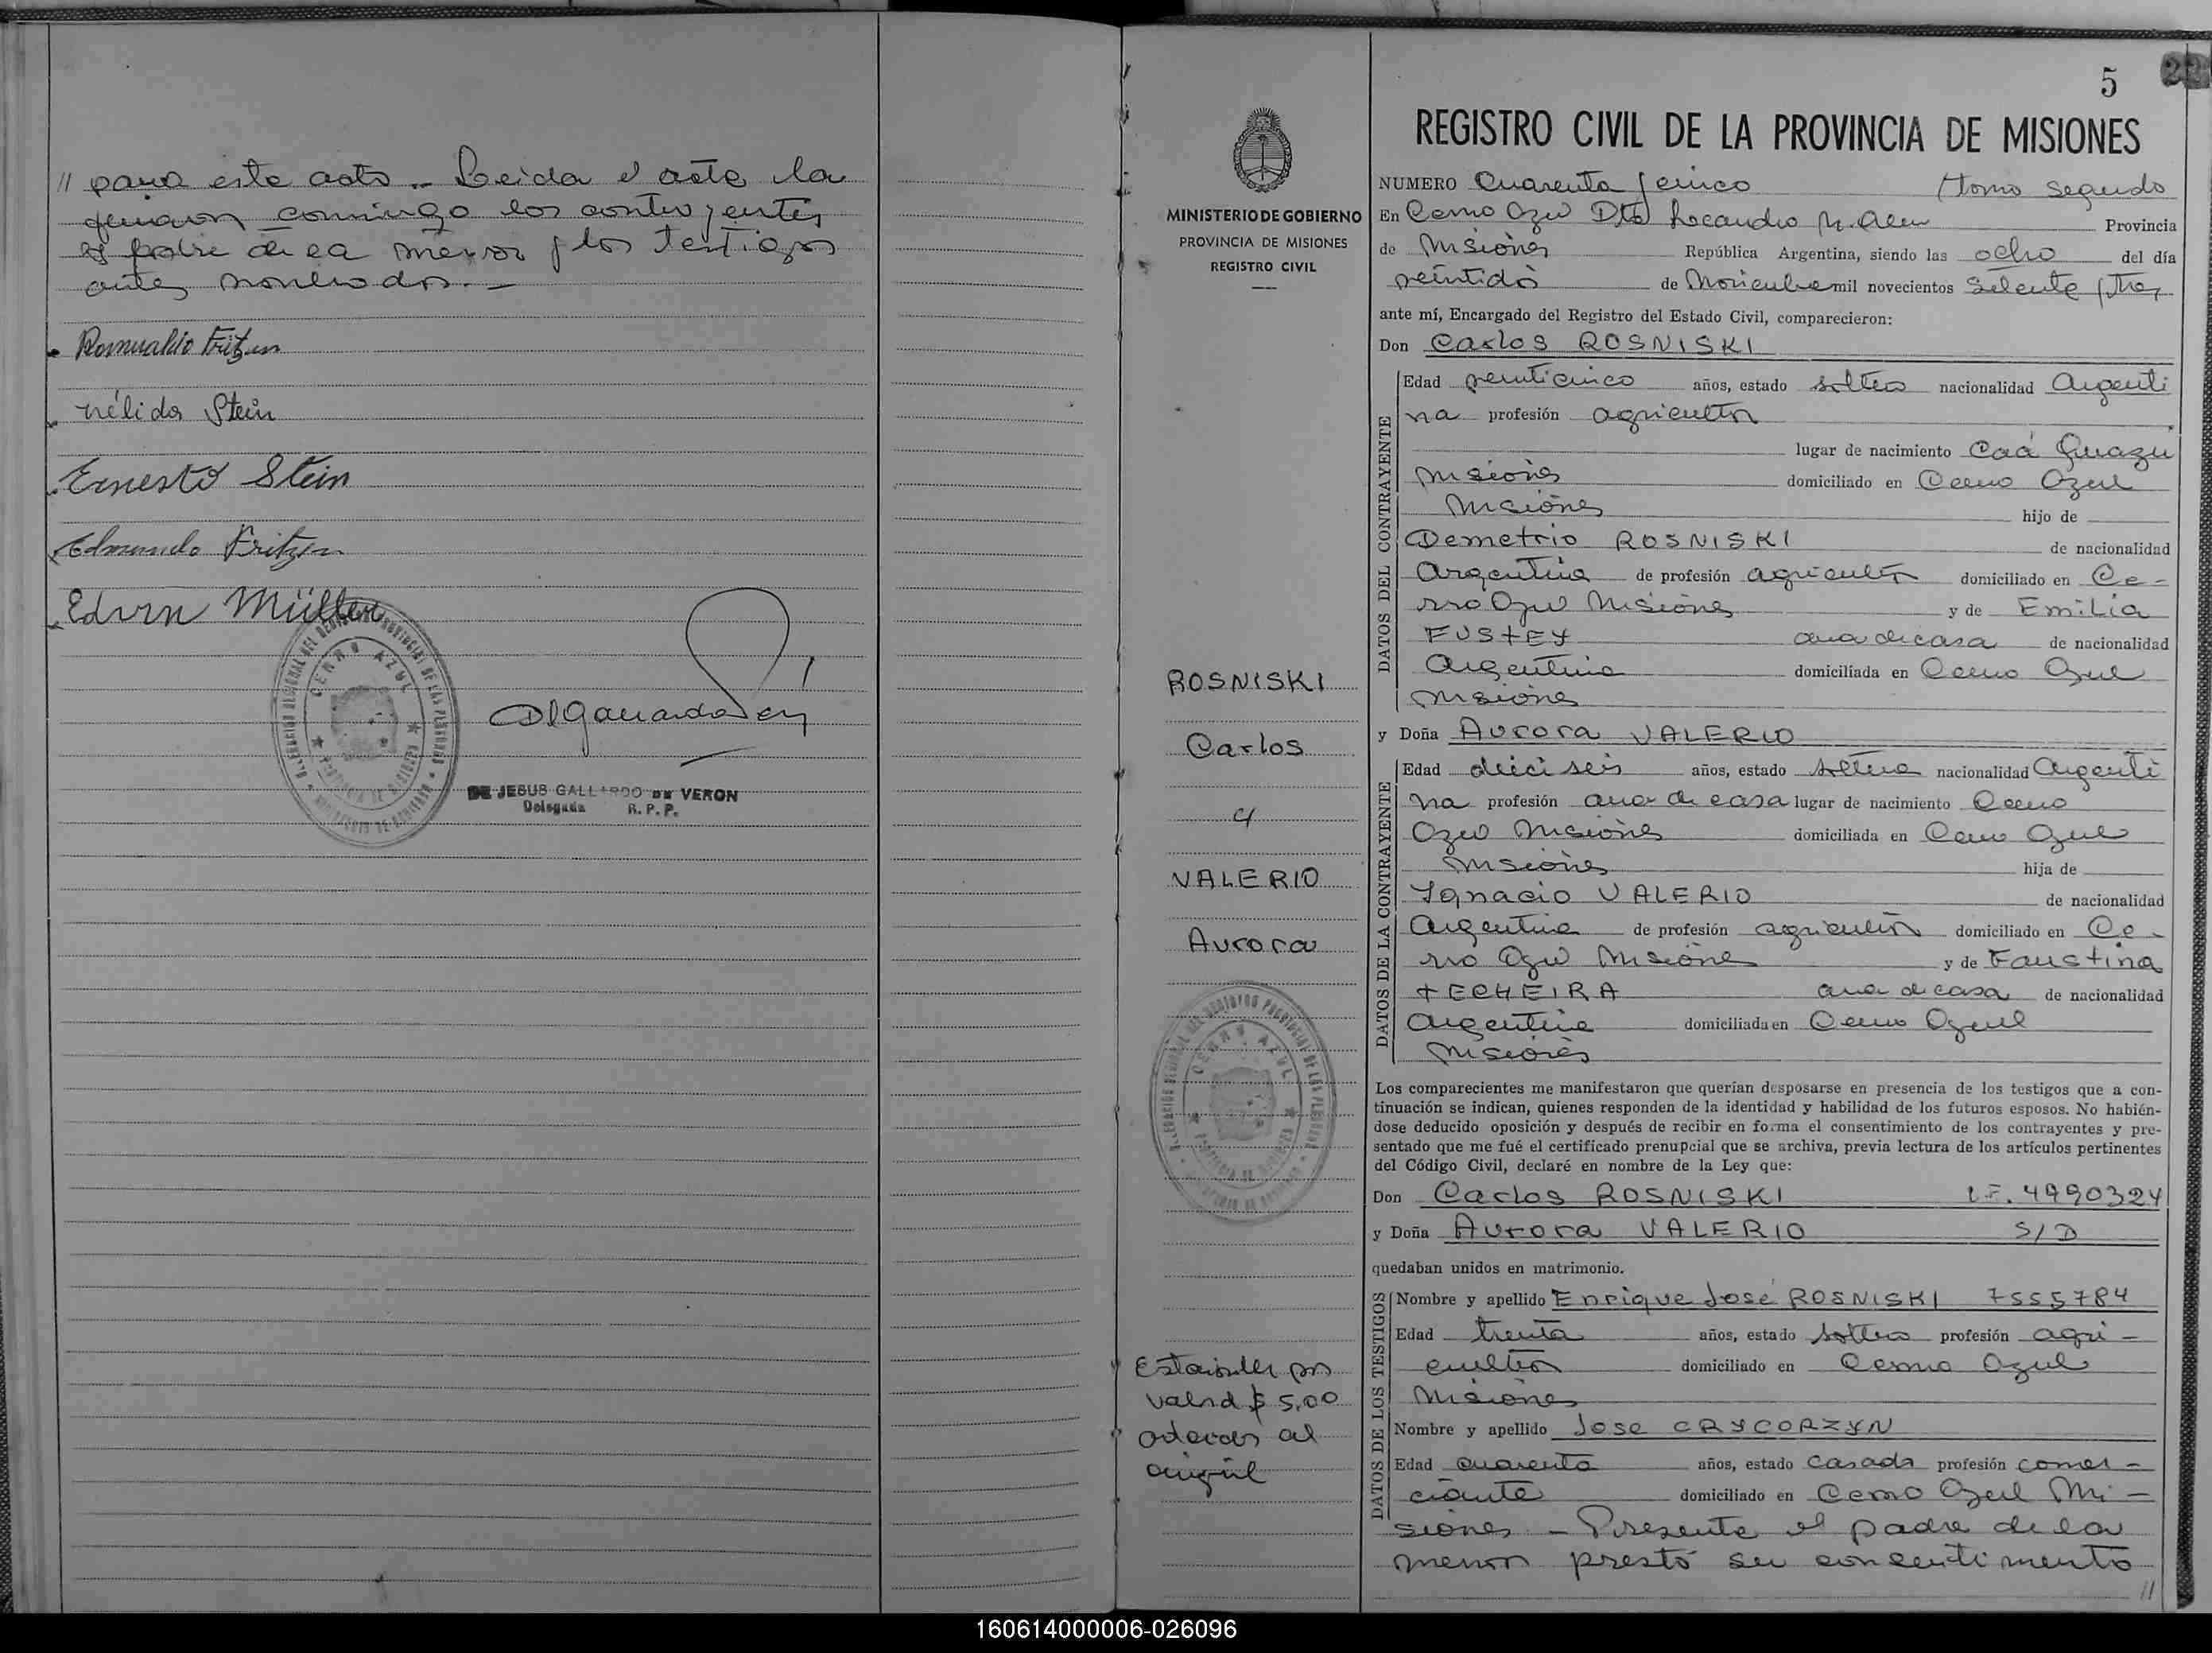 // para este acto .. Leida el acta la
firman conmigo los contrayentes
el padre de la menor y los testigos
antes nombrados. —
Romualdo Fritzen
Nélida Stein
Ernesto Stein
Edmundo Fritzen
Edvin Müller
CERRO AZUL
DE JESUS GALLARDO DE VERON
Delegada R. P. P.
5
22
MINISTERIO DE GOBIERNO
PROVINCIA DE MISIONES
REGISTRO CIVIL
ROSNISKI
Carlos
y
VALERIO
Aurora
CERRO AZUL
valor $ 5,00
REGISTRO CIVIL DE LA PROVINCIA DE MISIONES
NUMERO Cuarenta y cinco Tomo segundo
En Cerro Azul Dto Leandro N. Alem Provincia
de Misiones República Argentina, siendo las ocho del día
veintidós de Noviembre mil novecientos setenta y tres
ante mí, Encargado del Registro del Estado Civil, comparecieron:
Don Carlos ROSNISKI
DATOS DEL CONTRAYENTE
Edad veinticinco años, estado soltero nacionalidad Argenti
na profesión agricultor
lugar de nacimiento Caá Guazu
Misiones domiciliado en Cerro Azul
Misiones hijo de
Demetrio ROSNISKI de nacionalidad
Argentina de profesión agricultor domiciliado en Ce-
rro Azul Misiones y de Emilia
FUSTEY ama de casa de nacionalidad
Argentina domiciliada en Cerro Azul
Misiones
y Doña Aurora VALERIO
DATOS DE LA CONTRAYENTE
Edad dieciseis años, estado soltera nacionalidad Argenti
na profesión ama de casa lugar de nacimiento Cerro
Azul Misiones domiciliada en Cerro Azul
Misiones hija de
Ignacio VALERIO de nacionalidad
Argentina de profesión agricultor domiciliado en Ce-
rro Azul Misiones y de Faustina
TECHEIRA ama de casa de nacionalidad
Argentina domiciliada en Cerro Azul
Misiones
Los comparecientes me manifestaron que querían desposarse en presencia de los testigos que a con-
tinuación se indican, quienes responden de la identidad y habilidad de los futuros esposos. No habién-
dose deducido oposición y después de recibir en forma el consentimiento de los contrayentes y pre-
sentado que me fué el certificado prenupcial que se archiva, previa lectura de los artículos pertinentes
del Código Civil, declaré en nombre de la Ley que:
Don Carlos ROSNISKI L.E. 4990324
y Doña Aurora VALERIO S/D
quedaban unidos en matrimonio.
DATOS DE LOS TESTIGOS
Nombre y apellido Enrique José ROSNISKI 7555784
Edad treinta años, estado soltero profesión agri-
cultor domiciliado en Cerro Azul
Misiones
Nombre y apellido Jose CRYCORZYN
Edad cuarenta años, estado casado profesión comer-
ciante domiciliado en Cerro Azul Mi-
siones - Presente el padre de la
menor prestó su consentimento
//
160614000006-026096